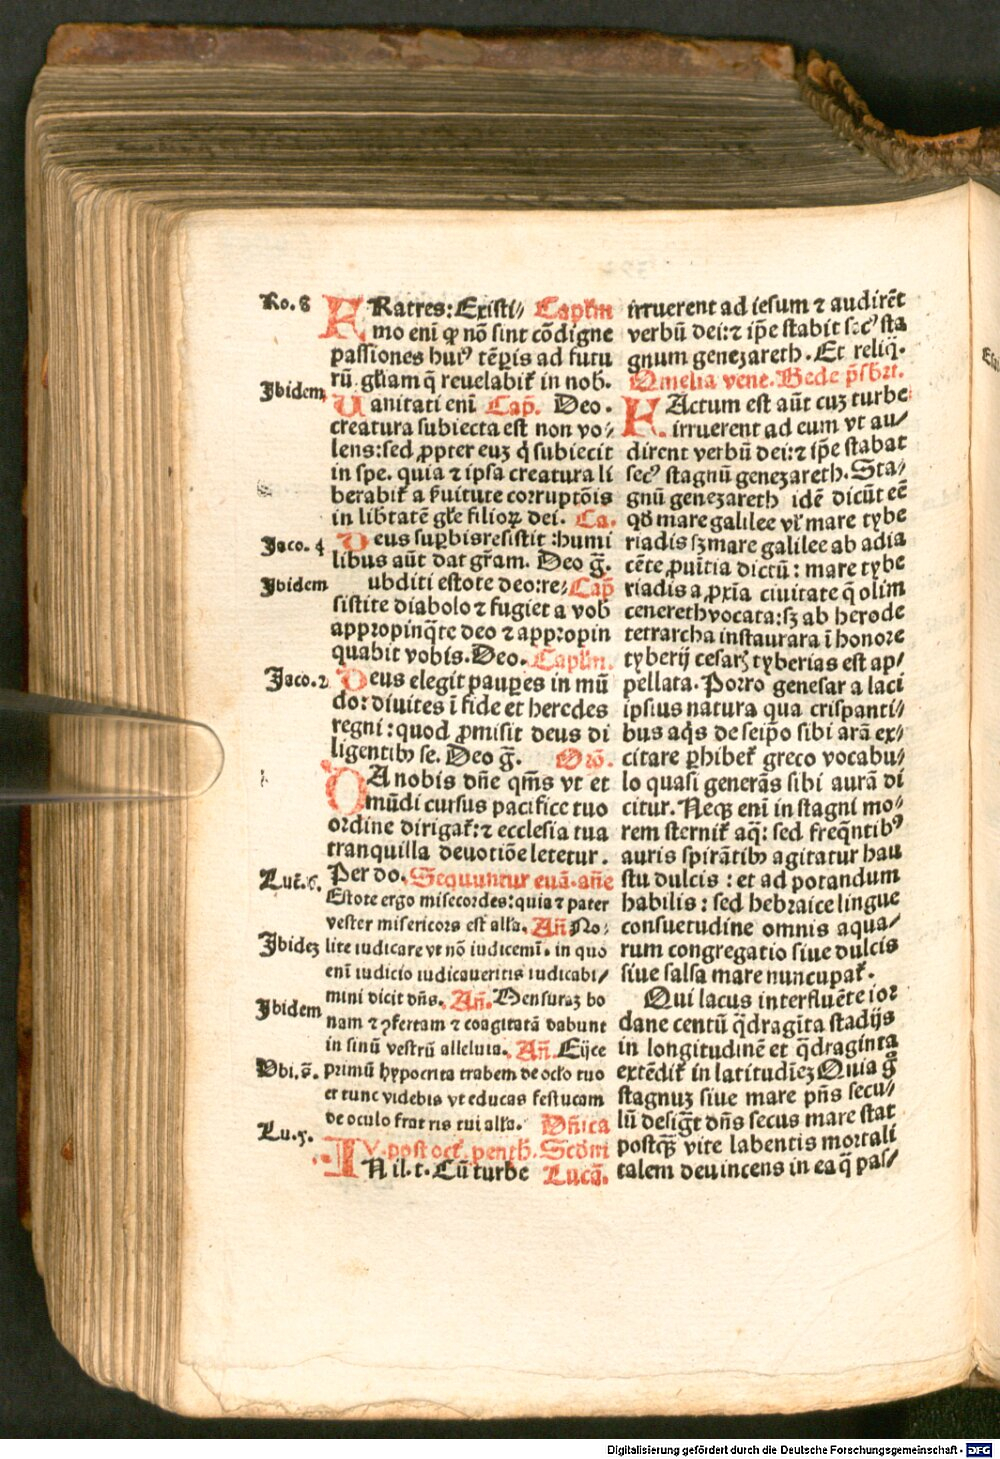 Ro. 8
FRatres: Existi// Capl'm
mo eni ꝙ nõ sint cõdigne
passiones huiꝰ tẽꝑis ad futu
rũ gl'iam q̃ reuelabit᷑ in nob.
Ibidem
Uanitati eni Cap̃. Deo.
creatura subiecta est non vo//
lens: sed ꝓpter euꝫ q̇ subiecit
in spe. quia ⁊ ipsa creatura li
berabit᷑ a ẜuitute corruptõis
in lib̃tatẽ gl'e filioꝝ dei. Ca.
Jaco. 4
Deus suꝑbis resistit : humi
libus aũt dat gr̃am. Deo g̃.
Ibidem
ubditi estote deo: re// Cap̃
sistite diabolo ⁊ fugiet a vob
appropinq̃te deo ⁊ appropin
quabit vobis. Deo. Capl'm.
Jaco. 2
Deus elegit pauꝑes in mũ
do: diuites ĩ fide et heredes
regni : quod ꝓmisit deus di
ligentibꝰ se. Deo g̃. Orõ.
DA nobis dñe qm̃s vt et
mũdi cursus pacifice tuo
ordine dirigat᷑: ⁊ ecclesia tua
tranquilla deuotiõe letetur.
Per do. Sequuntur euã. añe
Luc̃. 6.
Estote ergo misecordes: quia ⁊ pater
vester misericors est all'a. Añ No//
Ibideꝫ
lite iudicare vt nõ iudicemĩ. in quo
enĩ iudicio iudicaueritis iudicabi//
mini dicit dñs. Añ. Mensuraꝫ bo
Ibidem
nam ⁊ ꝯfertam ⁊ coagitatã dabunt
in sinũ vestrũ alleluia. Añ. Eijce
Vbi. s̃.
primũ hypocrita trabem de oc'lo tuo
et tunc videbis vt educas festucam
de oculo fratris tui all'a. Dñica
Lu. 5.
IV. post oct̃. penth. Scd̃m
IN il. t. Cũ turbe Lucã.
irruerent ad iesum ⁊ audirẽt
verbũ dei: ⁊ ip̃e stabit secꝰ sta
gnum geneꝫareth. Et reliq̃.
Omelia vene. Bede p̃sbr̃i.
FActum est aũt cuꝫ turbe
irruerent ad eum vt au//
dirent verbũ dei: ⁊ ip̃e stabat
secꝰ stagnũ geneꝫareth. Sta//
gnũ geneꝫareth idẽ dicũt eẽ
qd̃ mare galilee vl' mare tybe
riadis sꝫ mare galilee ab adia
cẽte ꝓuĩtia dictũ : mare tybe
riadis a ꝓxĩa ciuitate q̃ olim
cenereth vocata: sꝫ ab herode
tetrarcha instaurara ĩ honore
tyberij cesarꝭ tyberias est ap//
pellata. Porro genesar a laci
ipsius natura qua crispanti//
bus aq̃s de seip̃o sibi arã ex//
citare ꝑhibet᷑ greco vocabu//
lo quasi generãs sibi aurã di
citur. Neqꝫ enĩ in stagni mo//
rem sternit᷑ aq̃: sed freq̃ntibꝰ
auris spirãtibꝰ agitatur hau
stu dulcis : et ad potandum
habilis : sed hebraice lingue
consuetudine omnis aqua//
rum congregatio siue dulcis
siue salsa mare nuncupat᷑.
Qui lacus interfluẽte ior
dane centũ q̃dragĩta stadijs
in longitudinẽ et q̃draginta
extẽdit᷑ in latitudĩeꝫ Quia g̊
stagnuꝫ siue mare p̃ns secu//
lũ desig̃t dñs secus mare stat
postq̃ꝫ vite labentis mortali
talem deuincens in ea q̃ pas//
Digitalisierung gefördert durch die Deutsche Forschungsgemeinschaft - DFG